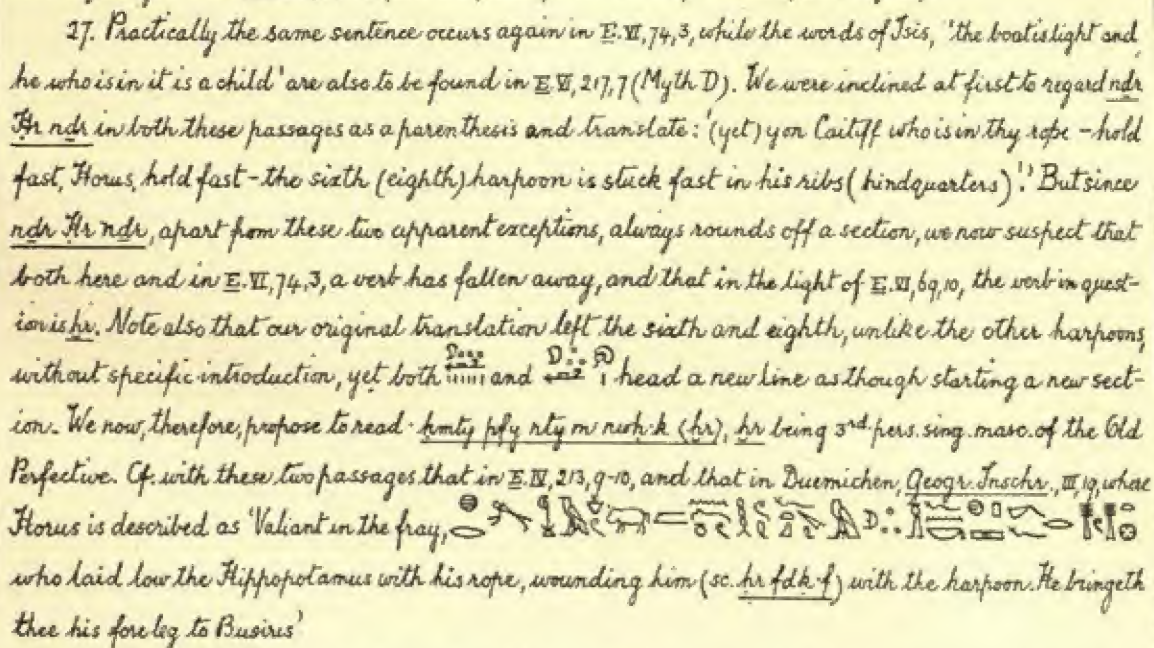 27. Practically the same sentence occurs again in E.VI,74,3, while the words of Isis, 'the boat is light and
he who is in it is a child' are also to be found in E.VI,217,7 (Myth D). We were inclined at first to regard nḏr
Ḥr nḏr in both these passages as a parenthesis and translate: '(yet) yon Caitiff who is in thy rope – hold
fast, Horus, hold fast – the sixth (eighth) harpoon is stuck fast in his ribs (hindquarters)'.' But since
nḏr Ḥr nḏr, apart from these two apparent exceptions, always rounds off a section, we now suspect that
both here and in E.VI,74,3, a verb has fallen away, and that in the light of E.VI,69,10, the verb in quest-
ion is ḫr. Note also that our original translation left the sixth and eighth, unlike the other harpoons,
without specific introduction, yet both and head a new line as though starting a new sect-
ion. We now, therefore, propose to read · ḫmty pfy nty m nwḥ·k (ḫr), ḫr being 3rd pers. sing. masc. of the Old
Perfective. Cf. with these two passages that in E.IV,213,9-10, and that in Duemichen, Geogr. Inschr., III,19, where
Horus is described as 'Valiant in the fray,
who laid low the Hippopotamus with his rope, wounding him (sc. ḥr fdḳ·f) with the harpoon. He bringeth
thee his foreleg to Busirus'